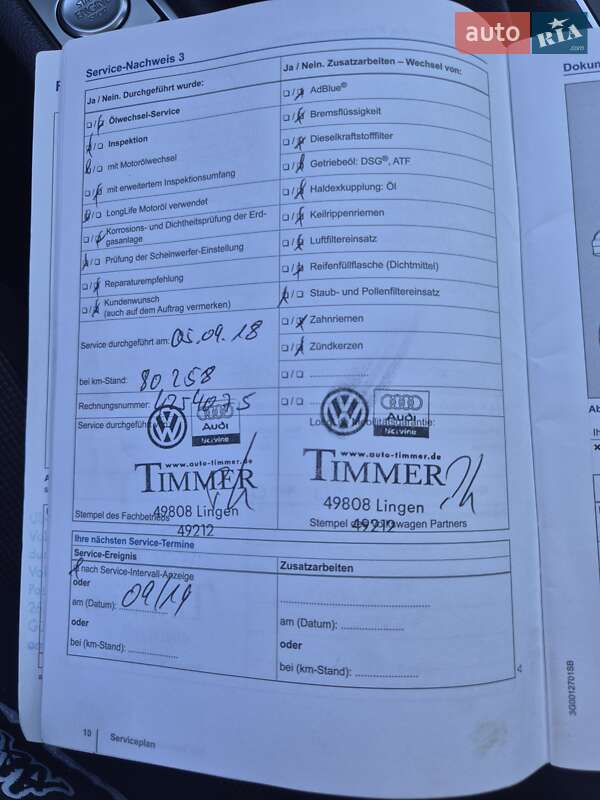 START
ENGINE
STOP
auto RIA
.com
Service-Nachweis 3
Ja / Nein. Durchgeführt wurde:
❏ / ❏ Ölwechsel-Service
❏ / ❏ Inspektion
❏ / ❏ mit Motorölwechsel
❏ / ❏ mit erweitertem Inspektionsumfang
❏ / ❏ LongLife Motoröl verwendet
❏ / ❏ Korrosions- und Dichtheitsprüfung der Erd-
gasanlage
❏ / ❏ Prüfung der Scheinwerfer-Einstellung
❏ / ❏ Reparaturempfehlung
❏ / ❏ Kundenwunsch
(auch auf dem Auftrag vermerken)
Service durchgeführt am: 05.09.18
bei km-Stand: 80.258
Rechnungsnummer:
Service durchgeführt
Audi
Service
www.auto-timmer.de
TIMMER
49808 Lingen
Stempel des Fachbetriebs
49212
Ja / Nein. Zusatzarbeiten – Wechsel von:
❏ / ❏ AdBlue®
❏ / ❏ Bremsflüssigkeit
❏ / ❏ Dieselkraftstofffilter
❏ / ❏ Getriebeöl: DSG®, ATF
❏ / ❏ Haldexkupplung: Öl
❏ / ❏ Keilrippenriemen
❏ / ❏ Luftfiltereinsatz
❏ / ❏ Reifenfüllflasche (Dichtmittel)
❏ / ❏ Staub- und Pollenfiltereinsatz
❏ / ❏ Zahnriemen
❏ / ❏ Zündkerzen
❏ / ❏ ....................
❏ / ❏
Audi
Service
www.auto-timmer.de
TIMMER
49808 Lingen
Stempel des Volkswagen Partners
49212
Ihre nächsten Service-Termine
Service-Ereignis
❏ nach Service-Intervall-Anzeige
oder
am (Datum): 09/19
oder
bei (km-Stand): ....................
Zusatzarbeiten
........................................
am (Datum): ....................
oder
bei (km-Stand): ....................
4
10 Serviceplan
3G0012701SB
Dokum